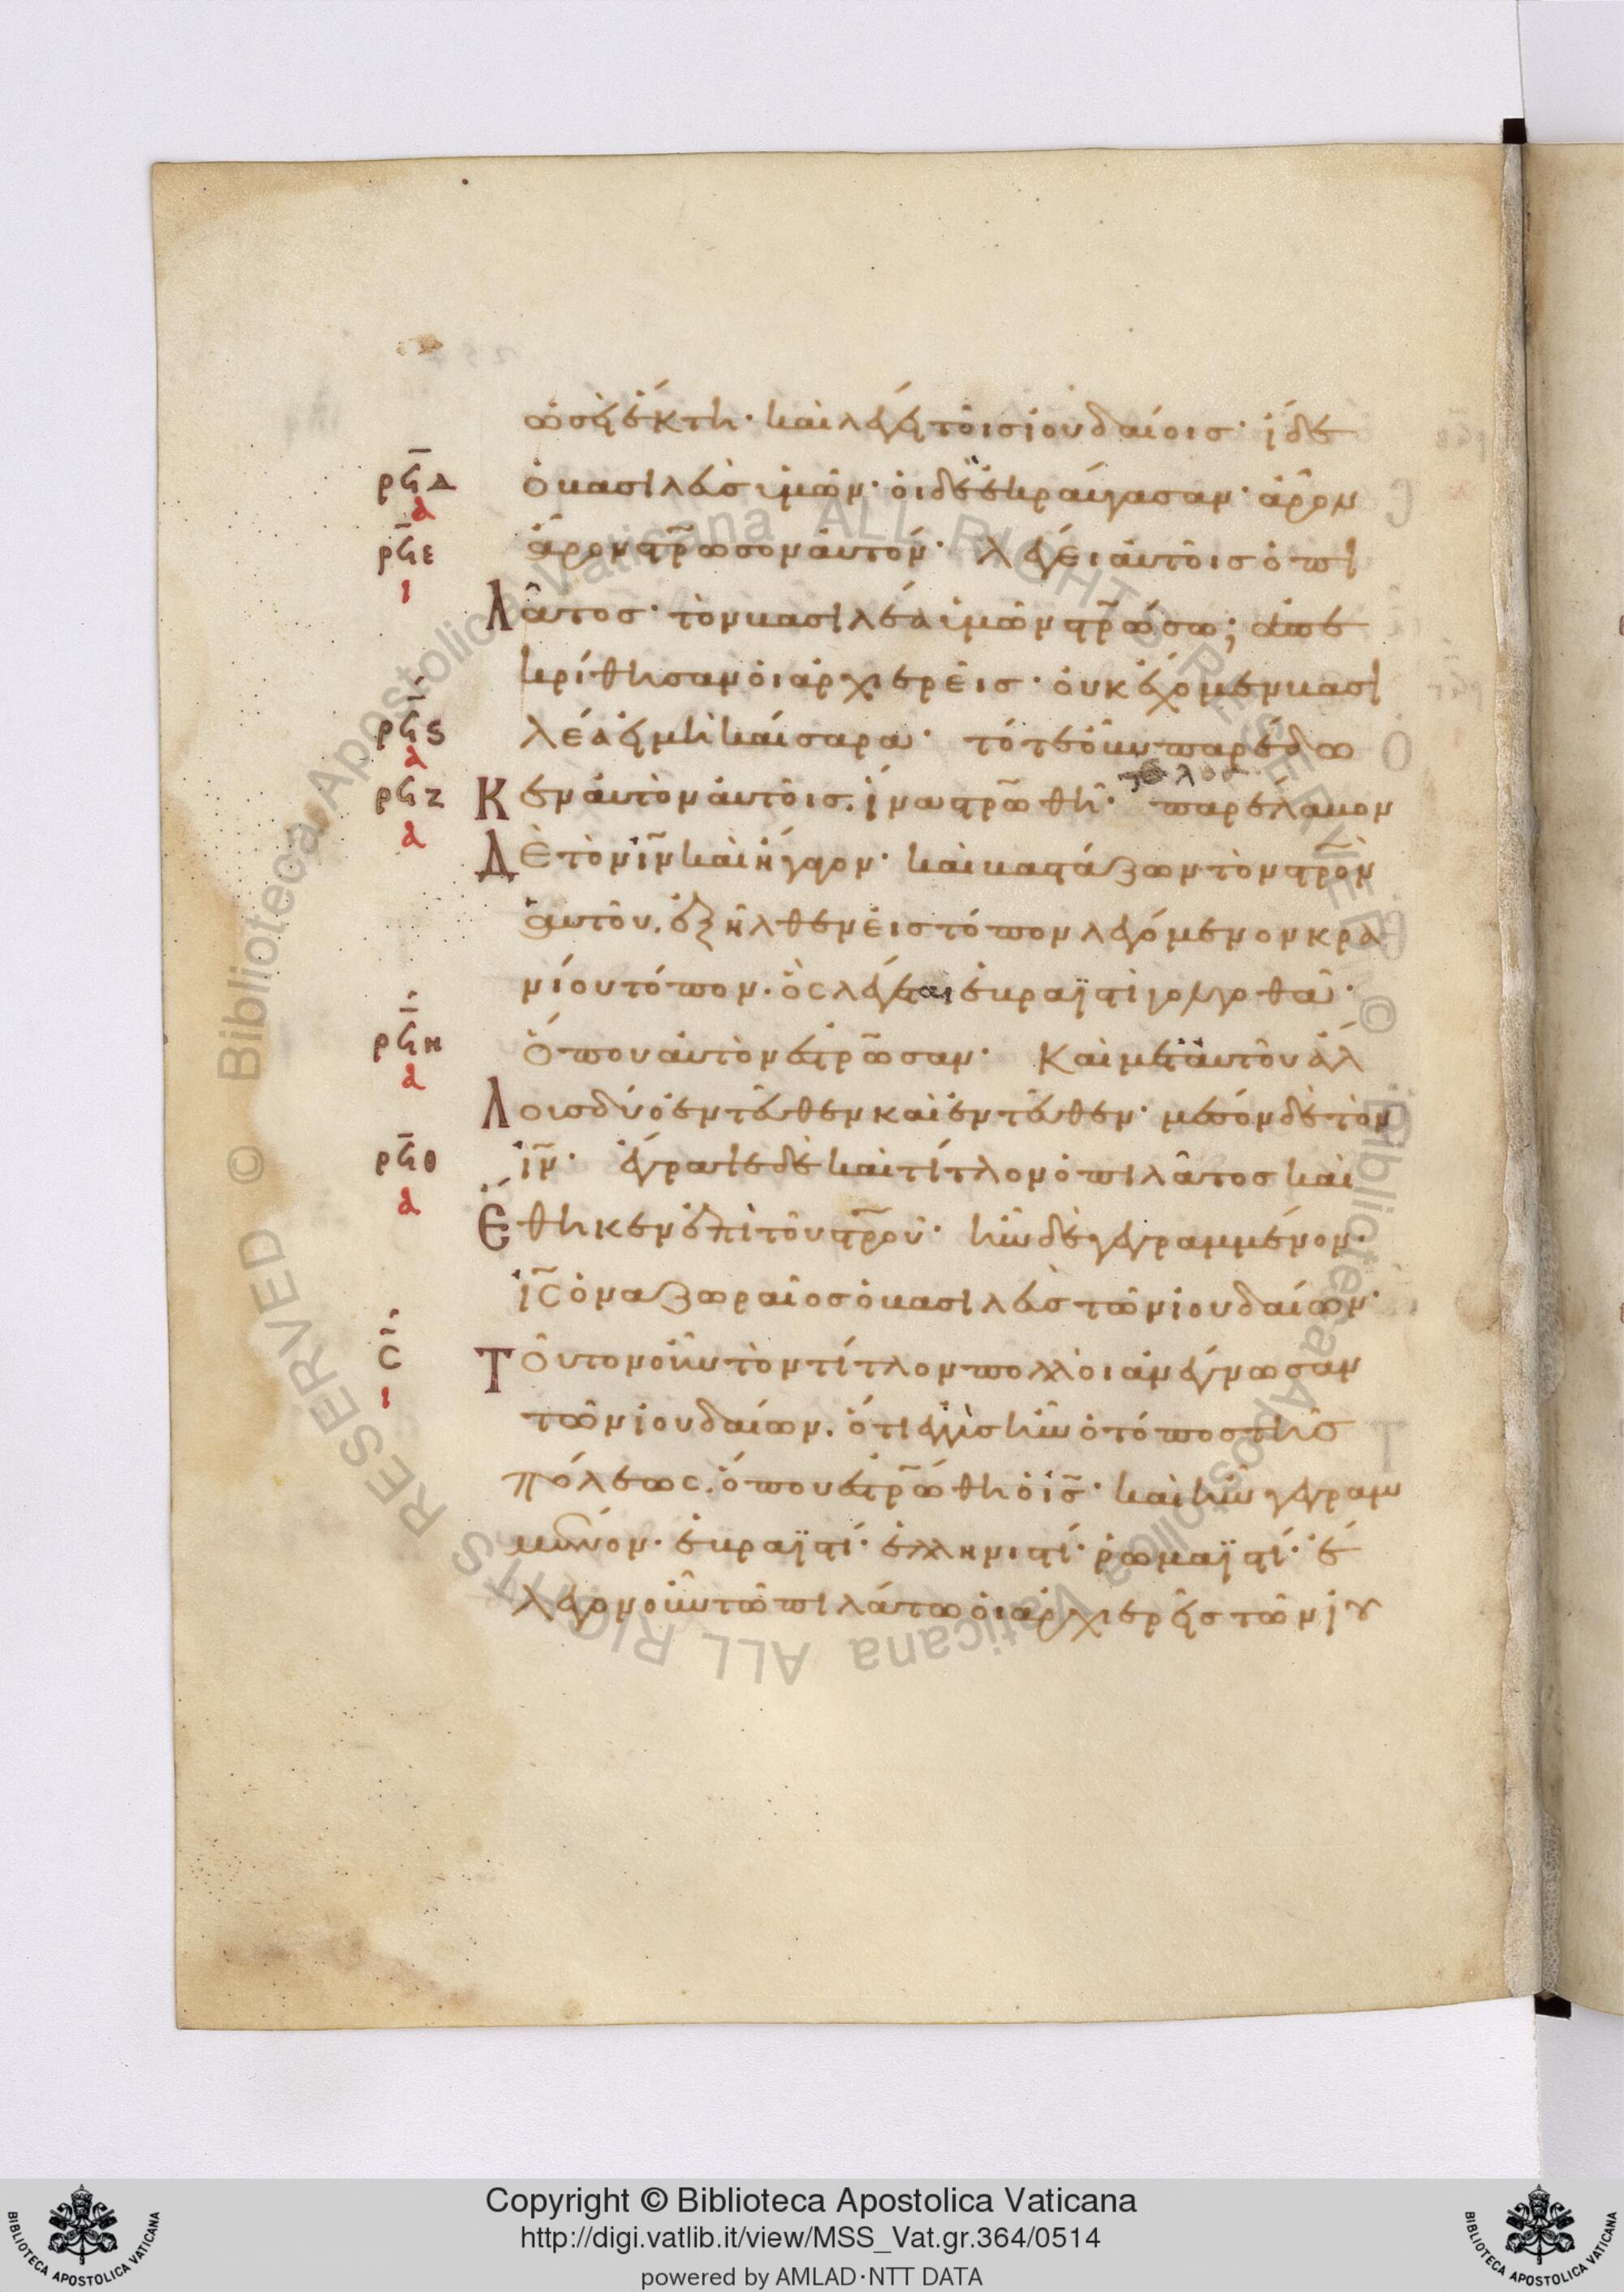 ὡσεὶ ἕκτη· καὶ λέγει τοῖς ἰουδαίοις· ἴδε
ρϟδ α ὁ βασιλεὺς ὑμῶν· οἱ δὲ ἐκραύγασαν· ἆρον
ρϟε ι ἆρον στρωσον αὐτόν· λέγει αὐτοῖς ὁ πι
λᾶτος· τὸν βασιλέα ὑμῶν στρώσω; ἀπε
κρίθησαν οἱ ἀρχιερεῖς· οὐκ ἔχομεν βασι
ρϟς α λέα εἰ μὴ καίσαρα· τότε οὖν παρέδω
τέλος
ρϟζ α κεν αὐτὸν αὐτοῖς. ἵνα στρωθῆ· παρέλαβον
δὲ τὸν ιν καὶ ἤγαγον· καὶ βαστάζων τὸν στρον
αὐτοῦ. ἐξῆλθεν εἰς τόπον λεγόμενον κρα
νίου τόπον. ὃς λέγεται ἑβραϊστὶ γολγοθᾶ·
ρϟη α ὅπου αὐτὸν ἐστρωσαν· Καὶ μετ' αὐτοῦ ἄλ
λους δύο ἐντεῦθεν καὶ ἐντεῦθεν· μέσον δὲ τὸν
ρϟθ α ιν· ἔγραψε δὲ καὶ τίτλον ὁ πιλᾶτος καὶ
ἔθηκεν ἐπὶ τοῦ στρου· ἦν δὲ γεγραμμένον·
ις ὁ ναζωραῖος ὁ βασιλεὺς τῶν ἰουδαίων·
σ ι Τοῦτον οὖν τὸν τίτλον πολλοὶ ἀνέγνωσαν
τῶν ἰουδαίων. ὅτι ἐγγὺς ἦν ὁ τόπος τῆς
πόλεως. ὅπου ἐστρώθη ὁ ις· καὶ ἦν γεγραμ
μένον· ἑβραϊστί· ἑλληνιστί· ῥωμαϊστί· ἔ
λεγον οὖν τῶ πιλάτω οἱ ἀρχιερεῖς τῶν ἰου
© Biblioteca Apostolica Vaticana ALL RIGHTS RESERVED © Biblioteca Apostolica Vaticana ALL RIGHTS RESERVED
BIBLIOTECA APOSTOLICA VATICANA
Copyright © Biblioteca Apostolica Vaticana
http://digi.vatlib.it/view/MSS_Vat.gr.364/0514
powered by AMLAD·NTT DATA
BIBLIOTECA APOSTOLICA VATICANA